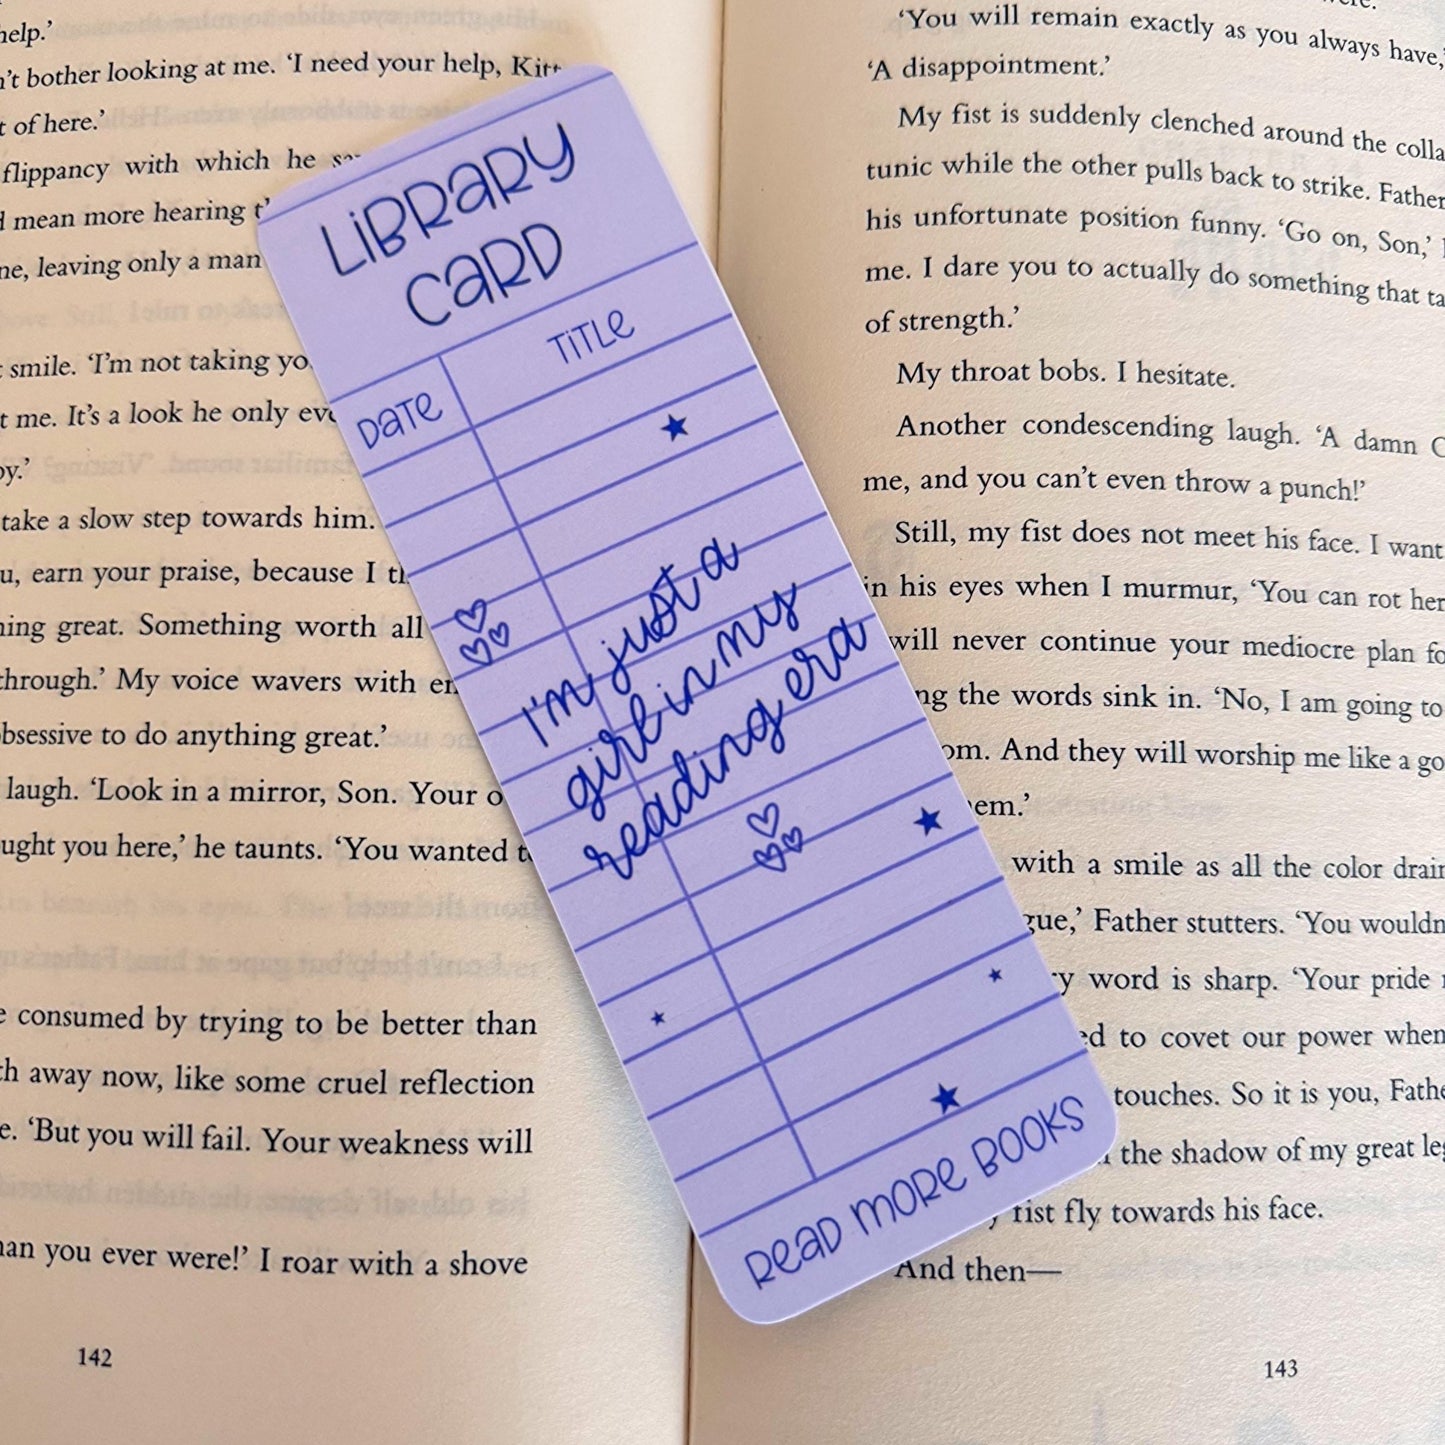 help.’
bother looking at me. ‘I need your help,
of here.’
flippancy with which he
mean more hearing
leaving only a man
smile. ‘I’m not taking
me. It’s a look he only
take a slow step towards him.
earn your praise, because I
great. Something worth all
through.’ My voice wavers with
obsessive to do anything great.’
laugh. ‘Look in a mirror, Son. Your
here,’ he taunts. ‘You wanted
consumed by trying to be better than
away now, like some cruel reflection
‘But you will fail. Your weakness will
you ever were!’ I roar with a shove
142
LiBRARY
CARD
DATe
TiTLe
I'm just a
girl in my
reading era
ReAD MORe BOOKS
‘You will remain exactly as you always have,’
‘A disappointment.’
My fist is suddenly clenched around the
tunic while the other pulls back to strike. Father
his unfortunate position funny. ‘Go on, Son,’
me. I dare you to actually do something that
of strength.’
My throat bobs. I hesitate.
Another condescending laugh. ‘A damn
me, and you can’t even throw a punch!’
Still, my fist does not meet his face. I want
in his eyes when I murmur, ‘You can rot
will never continue your mediocre plan
the words sink in. ‘No, I am going to
And they will worship me like a
with a smile as all the color
Father stutters. ‘You
word is sharp. ‘Your pride
to covet our power when
touches. So it is you,
the shadow of my great
fist fly towards his face.
And then—
143